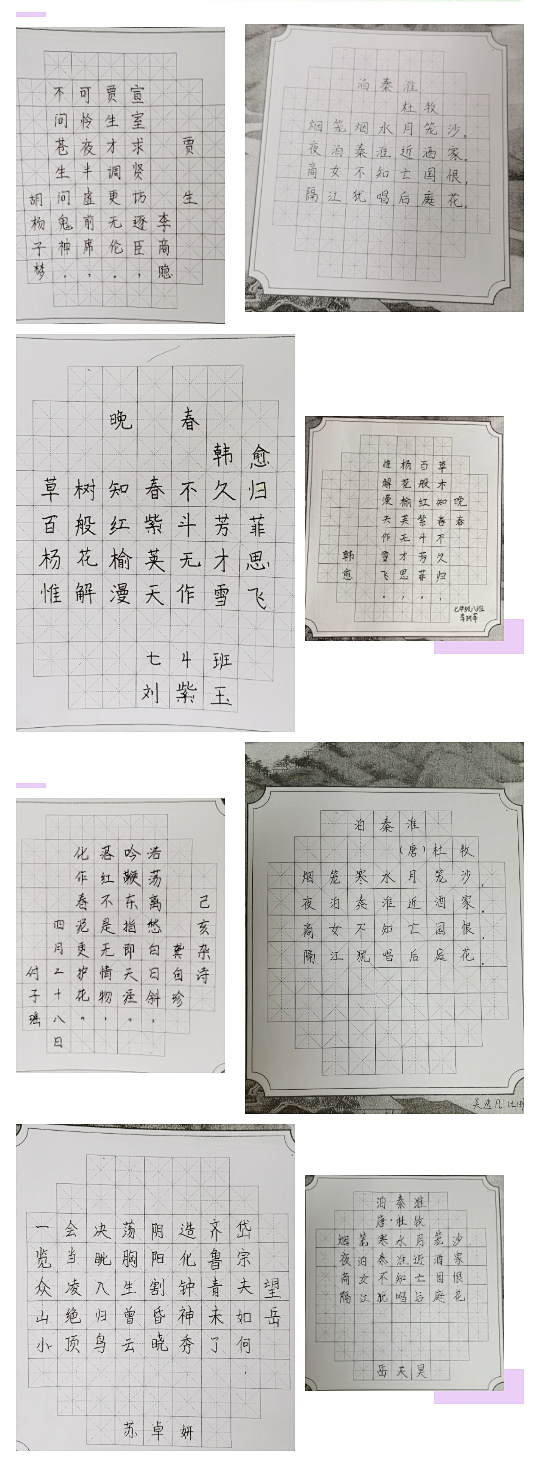 贾生
李商隐
宣室求贤访逐臣,
贾生才调更无伦。
可怜夜半虚前席,
不问苍生问鬼神。
胡杨子梦
泊秦淮
杜牧
烟笼烟水月笼沙,
夜泊秦淮近酒家。
商女不知亡国恨,
隔江犹唱后庭花。
晚春
韩愈
草树知春不久归
百般红紫斗芳菲
杨花榆英无才思
惟解漫天作雪飞
七4班
刘紫玉
晚春
草木知春不久归,
百般红紫斗芳菲。
杨花榆英无才思,
惟解漫天作雪飞。
韩愈
己亥杂诗
龚自珍
浩荡离愁白日斜,
吟鞭东指即天涯。
落红不是无情物,
化作春泥更护花。
四月二十八日
付子瑶
泊秦淮
(唐)杜牧
烟笼寒水月笼沙,
夜泊秦淮近酒家。
商女不知亡国恨,
隔江犹唱后庭花。
吴逸凡
望岳
岱宗夫如何
齐鲁青未了
造化钟神秀
阴阳割昏晓
荡胸生曾云
决眦入归鸟
会当凌绝顶
一览众山小
苏卓妍
泊秦淮
唐·杜牧
烟笼寒水月笼沙
夜泊秦淮近酒家
商女不知亡国恨
隔江犹唱后庭花
岳天昊